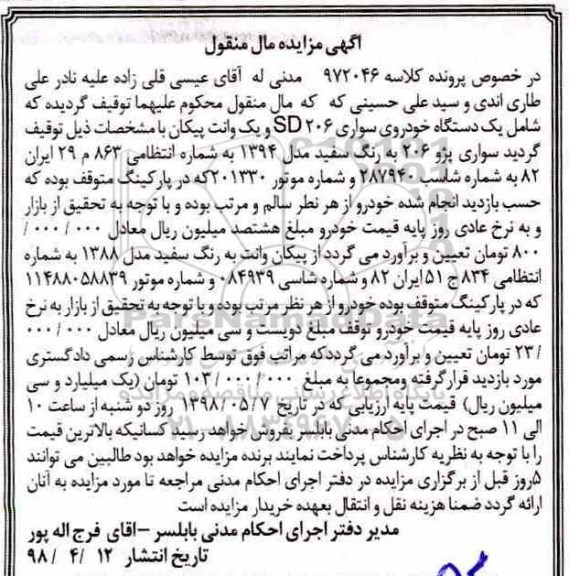 آگهی مزایده مال منقول
در خصوص پرونده کلاسه ۹۷۲۰۴۶ مدنی له آقای عیسی قلی زاده علیه نادر علی
طاری اندی و سید علی حسینی که که مال منقول محکوم علیهما توقیف گردیده که
شامل یک دستگاه خودروی سواری ۲۰۶ SD و یک وانت پیکان با مشخصات ذیل توقیف
گردید سواری پژو ۲۰۶ به رنگ سفید مدل ۱۳۹۴ به شماره انتظامی ۸۶۳ م ۲۹ ایران
۸۲ به شماره شاسی ۲۸۷۹۴۰ و شماره موتور ۲۰۱۳۳۰که در پارکینگ متوقف بوده که
حسب بازدید انجام شده خودرو از هر نظر سالم و مرتب بوده و با توجه به تحقیق از بازار
و به نرخ عادی روز پایه قیمت خودرو مبلغ هشتصد میلیون ریال معادل ۰۰۰/۰۰۰/
۸۰۰ تومان تعیین و برآورد می گردد از پیکان وانت به رنگ سفید مدل ۱۳۸۸ به شماره
انتظامی ۸۳۴ ج ۵۱ ایران ۸۲ و شماره شاسی ۰۸۴۹۳۹ و شماره موتور ۱۱۴۸۸۰۵۸۸۳۹
که در پارکینگ متوقف بوده خودرو از هر نظر مرتب بوده و با توجه به تحقیق از بازار به نرخ
عادی روز پایه قیمت خودرو توقف مبلغ دویست و سی میلیون ریال معادل ۰۰۰/۰۰۰
/۲۳ تومان تعیین و برآورد می گرددکه مراتب فوق توسط کارشناس رسمی دادگستری
مورد بازدید قرار گرفته ومجموعا به مبلغ ۰۰۰/۰۰۰/۱۰۳ تومان (یک میلیارد و سی
میلیون ریال) قیمت پایه ارزیابی که در تاریخ ۱۳۹۸/۰۵/۷ روز دو شنبه از ساعت ۱۰
الی ۱۱ صبح در اجرای احکام مدنی بابلسر بفروش خواهد رسید کسانیکه بالاترین قیمت
را با توجه به نظریه کارشناس پرداخت نمایند برنده مزایده خواهد بود طالبین می توانند
۵روز قبل از برگزاری مزایده در دفتر اجرای احکام مدنی مراجعه تا مورد مزایده به آنان
ارائه گردد ضمنا هزینه نقل و انتقال بعهده خریدار مزایده است
مدیر دفتر اجرای احکام مدنی بابلسر –اقای فرج اله پور
تاریخ انتشار ۱۲ /۴/ ۹۸